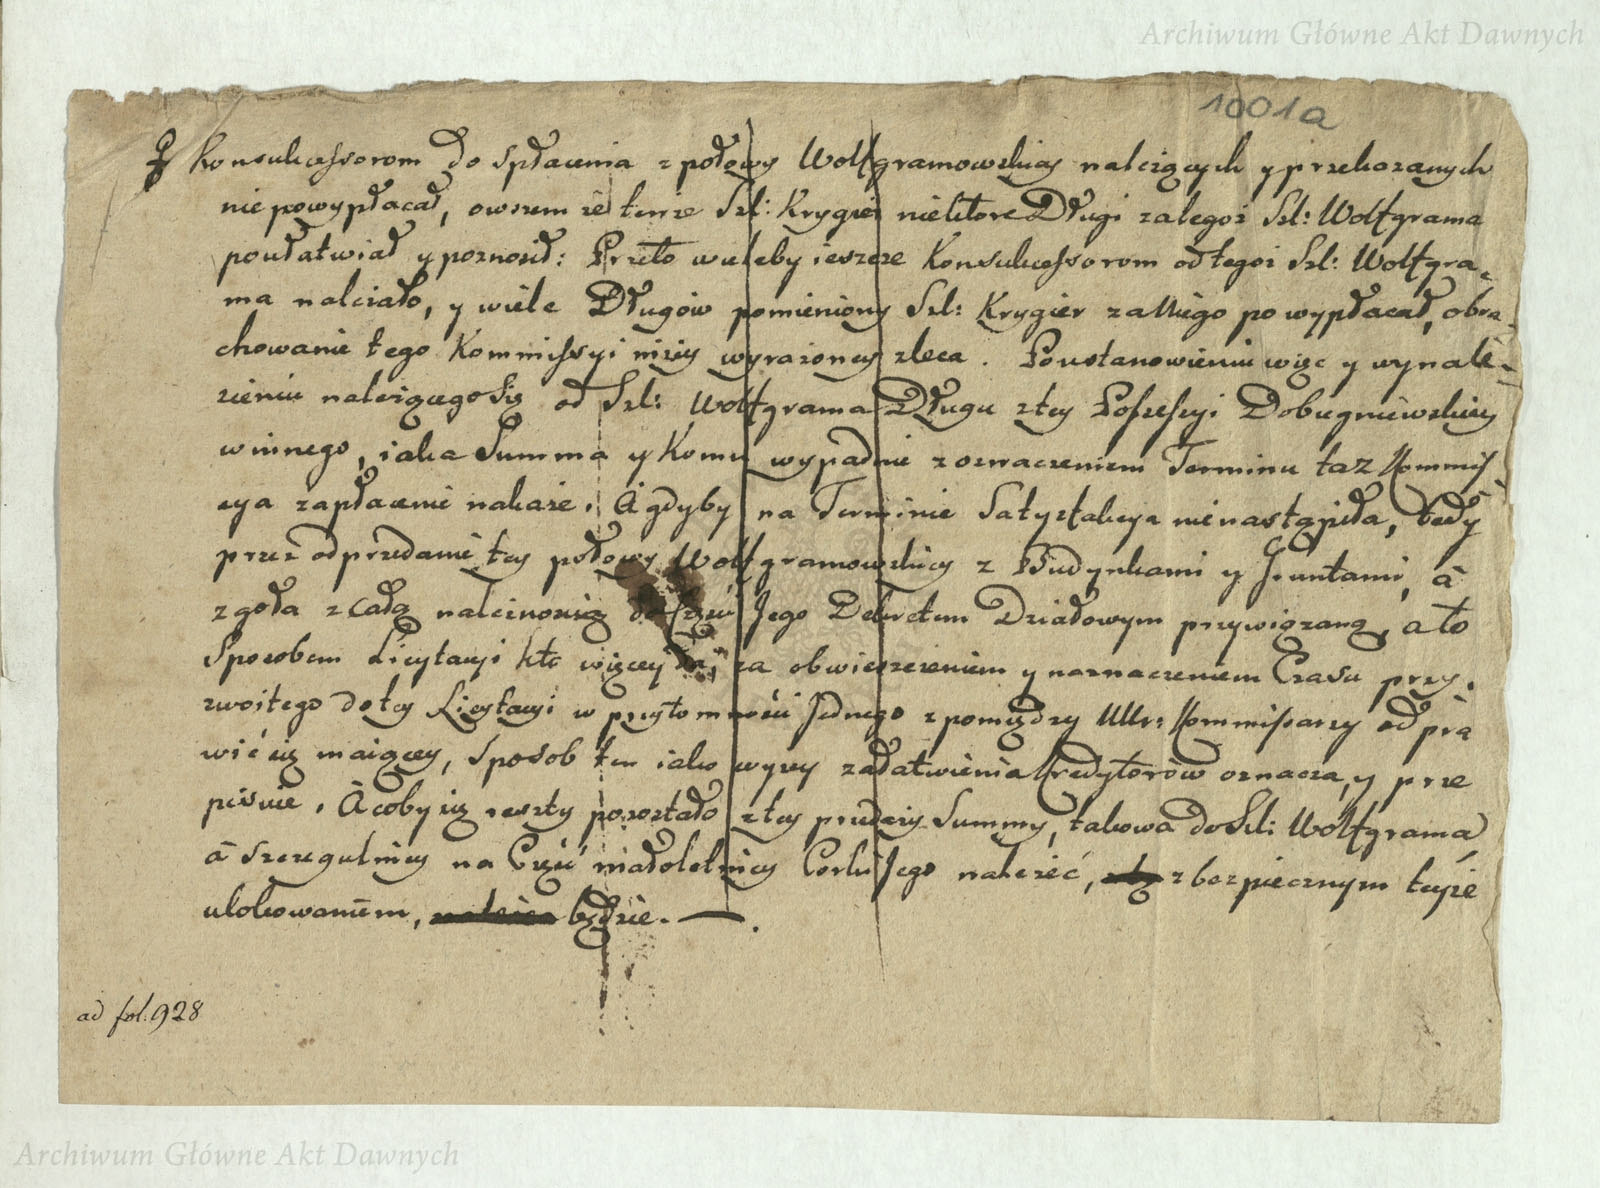 Archiwum Główne Akt Dawnych
1001a
Konsukcessorom do spłacenia z połowy Wolfgramowskiey należących y przekazanych
niepowypłacał, owszem że tenże Szl: Krygier niektóre Długi zalegoż Szl: Wolfgrama
poułatwiał y poznosił: Przeto wieleby ieszcze Konsukcessorom od tegoż Szl: Wolfgra„
ma należało, y wiele Długów pomieniony Szl: Krygier za Niego powypłacał, obra„
chowanie tego Kommissyi niżey wyrażoney zleca. Poustanowieniu więc y wynale„
zieniu należącego się od Szl: Wolfgrama Długu z tey Possessyi Dobiegniewskiey
winnego, iaka Summa y Komu wypadnie z oznaczeniem Terminu taż Kommis
sya zapłacenie nakaże. A gdyby na Terminie Satysfakcya nienastąpiła, tedy
przez odprzedanie tey połowy Wolfgramowskiey z Budynkami y Gruntami, à
zgoła z całą należnością do Częsci Jego Dekretem Działowym przywiązaną, a to
Sposobem Licytacyi kto więcey da, za obwieszczeniem y naznaczeniem Czasu przy„
zwoitego do tey Licytacyi w przytomności Jednego z pomiędzy UUr: Kommissarzy odpra
wić się maiącey, sposob ten iako wyżey załatwienia Kredytorów oznacza, y prze
pisuie. A coby się reszty pozostało z tey przedaży Summy, takowa do Szl: Wolfgrama
à szczegulniey na Część małoletniey Corki Jego należeć, z bezpiecznym teyże
ulokowaniem, będzie.
ad fol. 928
Archiwum Główne Akt Dawnych